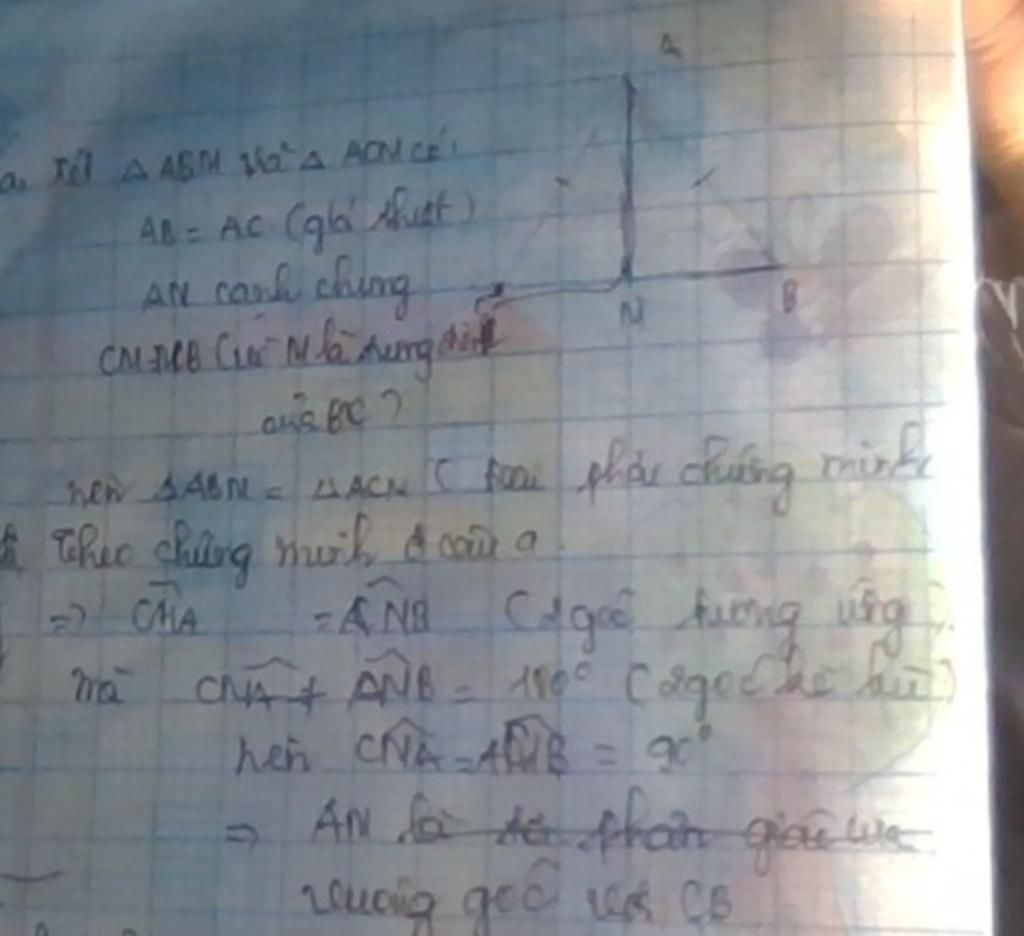 A
a. Xét △ ABN và △ ACN có:
AB = AC (giả thiết)
AN cạnh chung
N B
CN=NB (vì N là trung điểm
của BC)
nên △ABN = △ACN ( chứng minh
Theo chứng minh ở câu a
=> CNA = ANB (2 góc tương ứng)
mà CNA + ANB = 180° (2 góc kề bù)
nên CNA = ANB = 90°
=> AN
vuông góc với CB